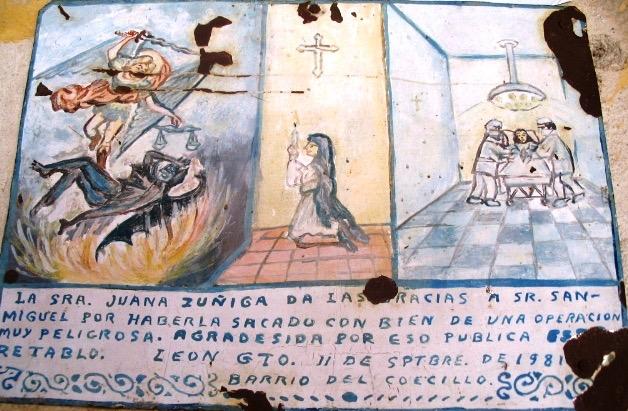 LA SRA. JUANA ZUÑIGA DA LAS GRACIAS A SR. SAN-
MIGUEL POR HABERLA SACADO CON BIEN DE UNA OPERACION
MUY PELIGROSA. AGRADESIDA POR ESO PUBLICA
RETABLO. LEON GTO. 11 DE SPTBRE. DE 1981
BARRIO DEL COECILLO.